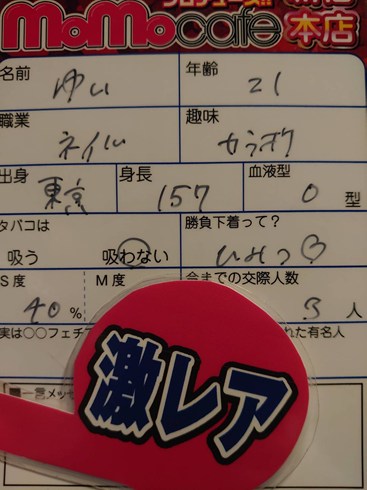 プロデュース!!
MoMocafe 本店
名前 ゆい 年齢 21
職業 ネイル 趣味 カラオケ
出身 東京 身長 157 血液型 O 型
タバコは 勝負下着って?
吸う 吸わない ひみつ♡
S度 M度 今までの交際人数
40% 3人
実は○○フェチ れた有名人
激レア
一言メッセ